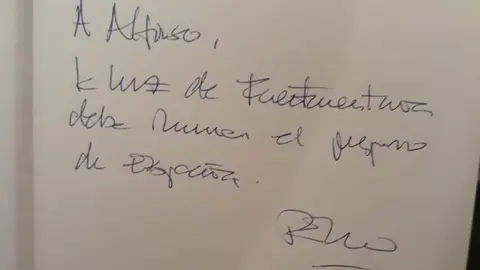 A Alfonso,
la luz de Fuerteventura
debe iluminar el
de España.